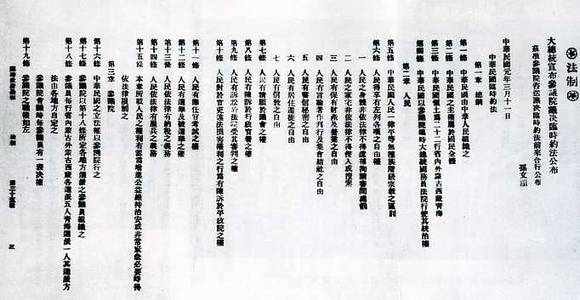 法制
大總統宣布參議院議決臨時約法公布
茲准參議院咨送議決臨時約法前來合行公布
孫文
中華民國元年三月十一日
中華民國臨時約法
第一章 總綱
第一條 中華民國由中華人民組織之
第二條 中華民國之主權屬於國民全體
第三條 中華民國領土爲二十二行省內外蒙古西藏青海
第四條 中華民國以參議院臨時大總統國務員法院行使其統治權
第二章 人民
第五條 中華民國人民一律平等無種族階級宗教之區別
第六條 人民得享有左列各項之自由權
一 人民之身體非依法律不得逮捕拘禁審問處罰
二 人民之家宅非依法律不得侵入或搜索
三 人民有保有財產及營業之自由
四 人民有言論著作刊行及集會結社之自由
五 人民有書信秘密之自由
六 人民有居住遷徙之自由
七 人民有信教之自由
第七條 人民有請願於議會之權
第八條 人民有陳訴於行政官署之權
第九條 人民有訴訟於法院受其審判之權
第十條 人民對於官吏違法損害權利之行爲有陳訴於平政院之權
第十一條 人民有應任官考試之權
第十二條 人民有選舉及被選舉之權
第十三條 人民依法律有納稅之義務
第十四條 人民依法律有服兵之義務
第十五條 本章所載人民之權利有認爲增進公益維持治安或非常緊急必要時得
依法律限制之
第三章 參議院
第十六條 中華民國之立法權以參議院行之
第十七條 參議院以第十八條所定各地方選派之參議員組織之
第十八條 參議員每行省內蒙古外蒙古西藏各選派五人青海選派一人其選派方
法由各地方自定之
參議院會議時每參議員有一表決權
第十九條 參議院之職權如左
法制
三